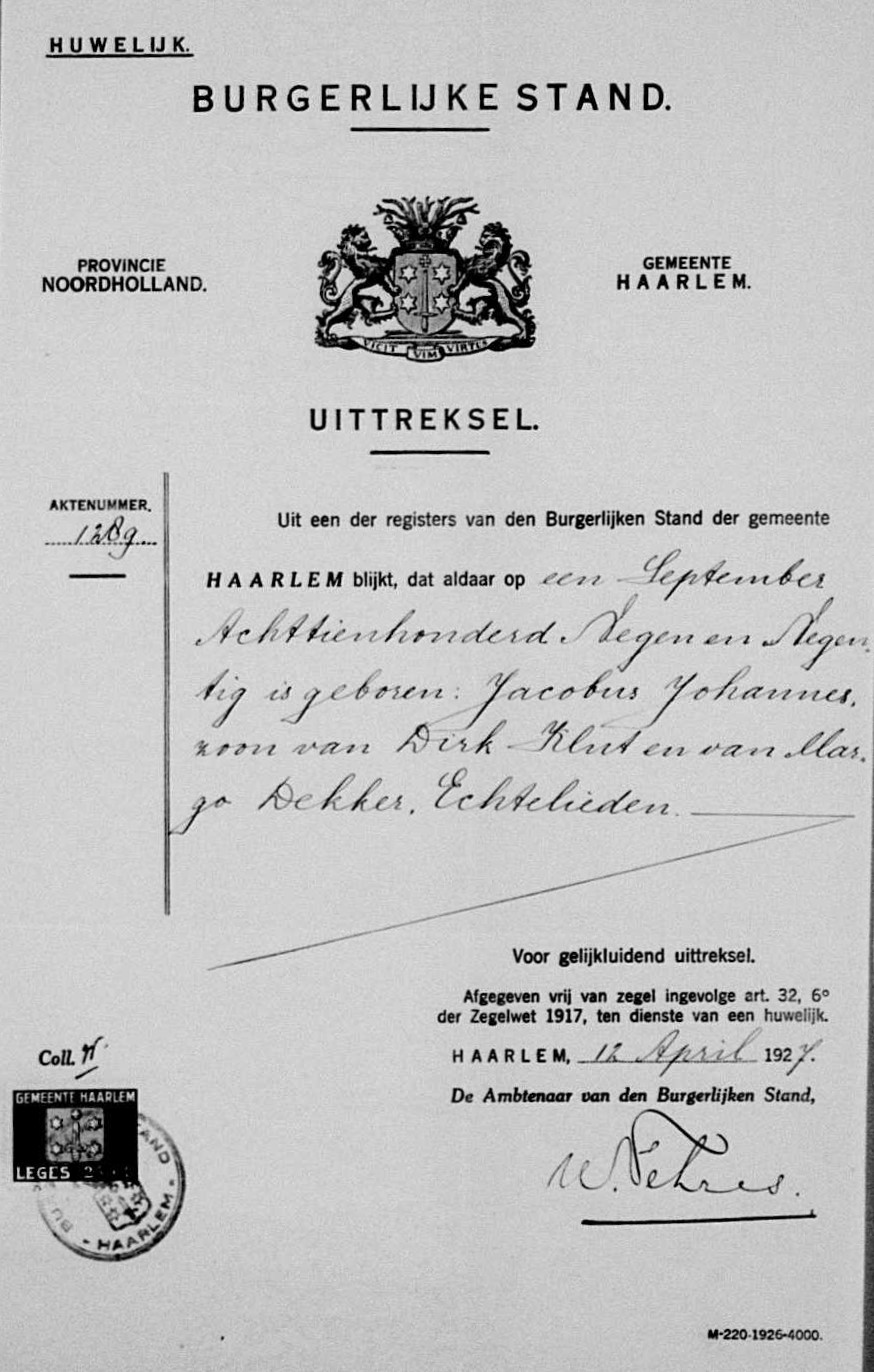 HUWELIJK.
BURGERLIJKE STAND.
PROVINCIE
NOORDHOLLAND.
GEMEENTE
HAARLEM.
VICIT VIM VIRTUS
UITTREKSEL.
AKTENUMMER.
1289
Uit een der registers van den Burgerlijken Stand der gemeente
HAARLEM blijkt, dat aldaar op een September
Achttienhonderd Negen en Negen-
tig is geboren: Jacobus Johannes,
zoon van Dirk Klut en van Mar-
go Dekker, Echtelieden.
Voor gelijkluidend uittreksel.
Afgegeven vrij van zegel ingevolge art. 32, 6°
der Zegelwet 1917, ten dienste van een huwelijk.
HAARLEM, 12 April 1927.
De Ambtenaar van den Burgerlijken Stand,
Coll.
GEMEENTE HAARLEM
LEGES
HAARLEM
M-220-1926-4000.